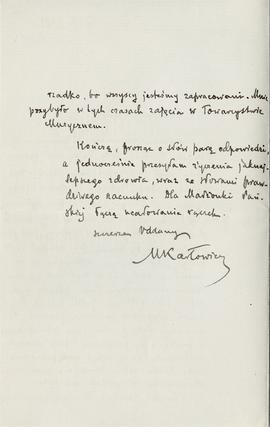 rzadko, bo wszyscy jesteśmy zapracowani. Mnie
przybyło w tych czasach zajęcia w Towarzystwie
Muzycznem.
Kończę, prosząc o słów parę odpowiedzi,
a jednocześnie przesyłam życzenia jaknaj-
lepszego zdrowia, wraz ze słowami praw-
dziwego szacunku. Dla Małżonki Pań-
skiej łączę ucałowania rączek.
szczerze oddany
MKarłowicz